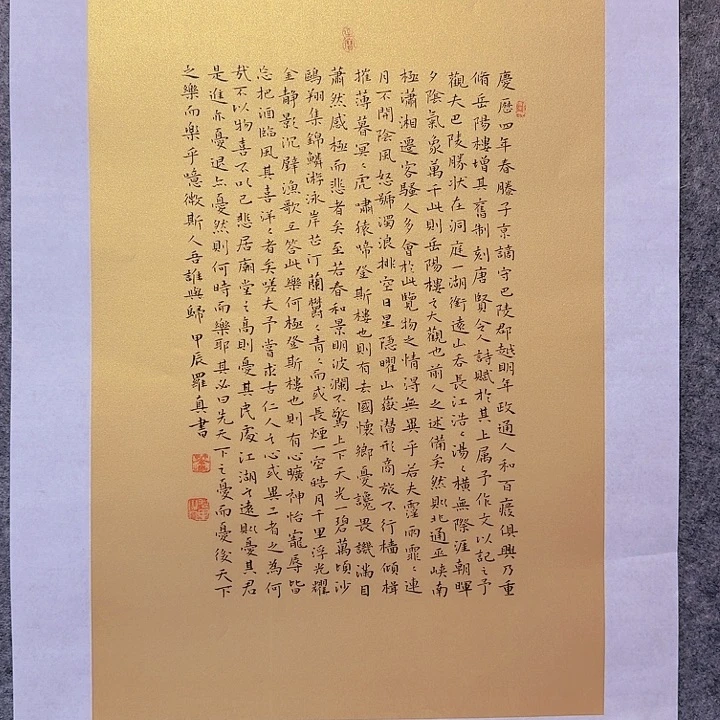 慶曆四年春滕子京謫守巴陵郡越明年政通人和百廢俱興乃重
脩岳陽樓增其舊制刻唐賢今人詩賦於其上属予作文以記之予
觀夫巴陵勝狀在洞庭一湖銜遠山吞長江浩〻湯〻橫無際涯朝暉
夕陰氣象萬千此則岳陽樓之大觀也前人之述備矣然則北通巫峽南
極瀟湘遷客騷人多會於此覽物之情得無異乎若夫霪雨霏〻連
月不開陰風怒號濁浪排空日星隱曜山嶽潛形商旅不行檣傾楫
摧薄暮冥〻虎嘯猿啼登斯樓也則有去國懷鄉憂讒畏譏滿目
蕭然感極而悲者矣至若春和景明波瀾不驚上下天光一碧萬頃沙
鷗翔集錦鱗游泳岸芷汀蘭鬱〻青〻而或長煙一空皓月千里浮光耀
金靜影沉壁漁歌互答此樂何極登斯樓也則有心曠神怡寵辱皆
忘把酒臨風其喜洋〻者矣嗟夫予嘗求古仁人之心或異二者之為何
哉不以物喜不以己悲居廟堂之高則憂其民處江湖之遠則憂其君
是進亦憂退亦憂然則何時而樂耶其必曰先天下之憂而憂後天下
之樂而樂乎噫微斯人吾誰與歸 甲辰羅真書